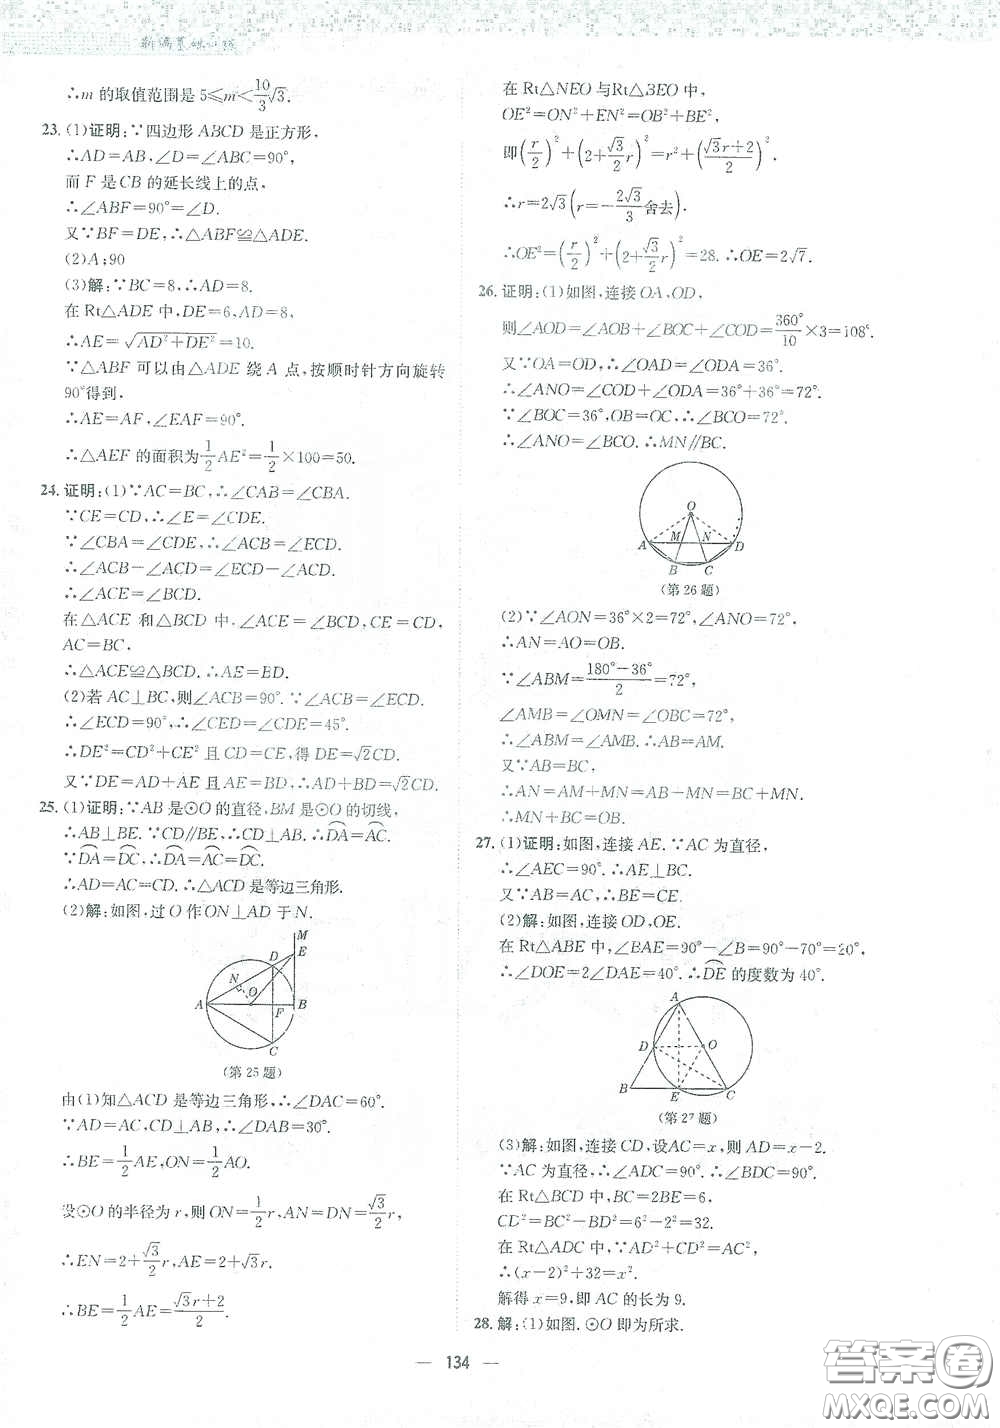 新编基础训练
∴m 的取值范围是 5≤m<10/3√3.
23. (1)证明:∵四边形 ABCD 是正方形,
∴AD=AB,∠D=∠ABC=90°,
而 F 是 CB 的延长线上的点,
∴∠ABF=90°=∠D.
又∵BF=DE,∴△ABF≌△ADE.
(2)A;90
(3)解:∵BC=8,∴AD=8.
在 Rt△ADE 中,DE=6,AD=8,
∴AE=√(AD²+DE²)=10.
∵△ABF 可以由△ADE 绕 A 点,按顺时针方向旋转
90°得到,
∴AE=AF,∠EAF=90°.
∴△AEF 的面积为1/2AE²=1/2×100=50.
24. 证明:(1)∵AC=BC,∴∠CAB=∠CBA.
∵CE=CD,∴∠E=∠CDE.
∵∠CBA=∠CDE,∴∠ACB=∠ECD.
∴∠ACB−∠ACD=∠ECD−∠ACD.
∴∠ACE=∠BCD.
在△ACE 和△BCD 中,∠ACE=∠BCD,CE=CD,
AC=BC,
∴△ACE≌△BCD.∴AE=BD.
(2)若 AC⊥BC,则∠ACB=90°.∵∠ACB=∠ECD.
∴∠ECD=90°,∴∠CED=∠CDE=45°.
∴DE²=CD²+CE² 且 CD=CE,得 DE=√2CD.
又∵DE=AD+AE 且 AE=BD,∴AD+BD=√2CD.
25. (1)证明:∵AB 是⊙O 的直径,BM 是⊙O 的切线,
∴AB⊥BE.∵CD∥BE,∴CD⊥AB.∴DA⌒=AC⌒.
∵DA⌒=DC⌒,∴DA⌒=AC⌒=DC⌒.
∴AD=AC=CD.∴△ACD 是等边三角形.
(2)解:如图,过 O 作 ON⊥AD 于 N.
M
E
D
N
O
A
F
B
C
(第 25 题)
由(1)知△ACD 是等边三角形,∴∠DAC=60°.
∵AD=AC,CD⊥AB,∴∠DAB=30°.
∴BE=1/2AE,ON=1/2AO.
设⊙O 的半径为 r,则 ON=1/2r,AN=DN=√3/2r,
∴EN=2+√3/2r,AE=2+√3r.
∴BE=1/2AE=(√3r+2)/2.
在 Rt△NEO 与Rt△BEO 中,
OE²=ON²+EN²=OB²+BE²,
即(r/2)²+(2+√3/2r)²=r²+((√3r+2)/2)².
∴r=2√3(r=−2√3/3舍去)
∴OE²=(r/2)²+(2+√3/2r)²=28.∴OE=2√7.
26. 证明:(1)如图,连接 OA,OD,
则∠AOD=∠AOB+∠BOC+∠COD=360°/10×3=108°
又∵OA=OD,∴∠OAD=∠ODA=36°.
∴∠ANO=∠COD+∠ODA=36°+36°=72°.
∵∠BOC=36°,OB=OC,∴∠BCO=72°.
∴∠ANO=∠BCO.∴MN∥BC.
O
A
M
N
D
B
C
(第 26 题)
(2)∵∠AON=36°×2=72°,∠ANO=72°,
∴AN=AO=OB.
∵∠ABM=(180°−36°)/2=72°,
∠AMB=∠OMN=∠OBC=72°,
∴∠ABM=∠AMB.∴AB=AM.
又∵AB=BC,
∴AN=AM+MN=AB+MN=OB.
∴MN+BC=OB.
27. (1)证明:如图,连接 AE.∵AC 为直径,
∴∠AEC=90°.∴AE⊥BC.
又∵AB=AC,∴BE=CE.
(2)解:如图,连接 OD,OE.
在 Rt△ABE 中,∠BAE=90°−∠B=90°−70°=20°,
∴∠DOE=2∠DAE=40°.∴DE⌒ 的度数为 40°.
A
D
O
B
E
C
(第 27 题)
(3)解:如图,连接 CD,设AC=x,则 AD=x−2.
∵AC 为直径,∴∠ADC=90°.∴∠BDC=90°.
在 Rt△BCD 中,BC=2BE=6,
CD²=BC²−BD²=6²−2²=32.
在 Rt△ADC 中,∵AD²+CD²=AC²,
∴(x−2)²+32=x².
解得 x=9,即 AC 的长为 9.
28. 解:(1)如图.⊙O 即为所求.
— 134 —
答案圈
MXQE.COM